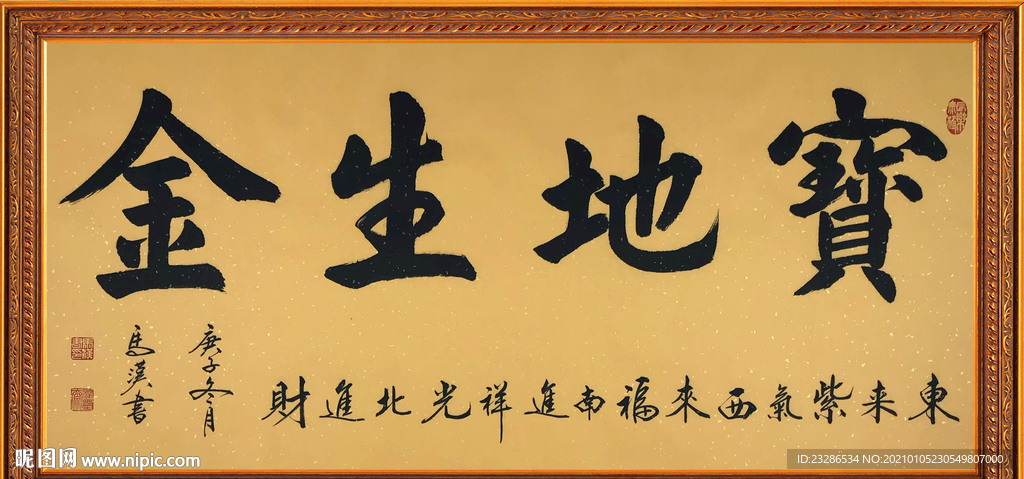 寶地生金
東来紫氣西來福南進祥光北進財
庚子冬月
馬漢書
昵图网 www.nipic.com
ID:23286534 NO:20210105230549807000